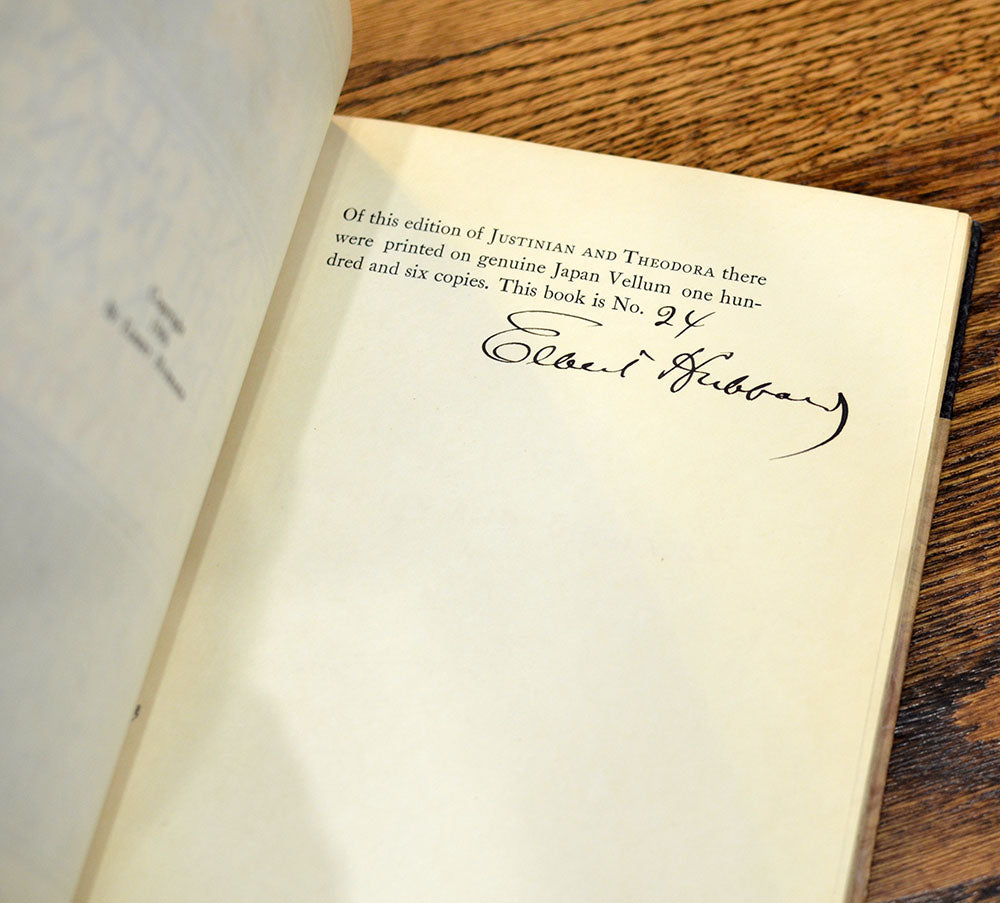 Of this edition of JUSTINIAN AND THEODORA there
were printed on genuine Japan Vellum one hun-
dred and six copies. This book is No. 24
Elbert Hubbard